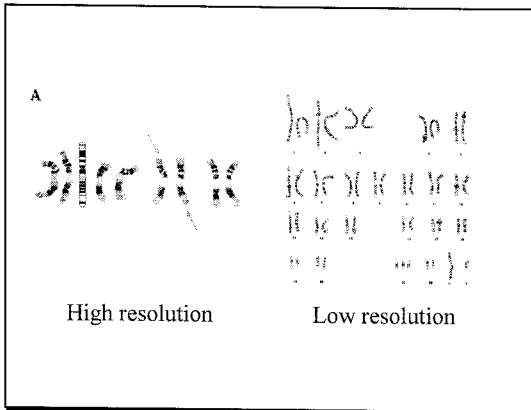 A
High resolution
Low resolution